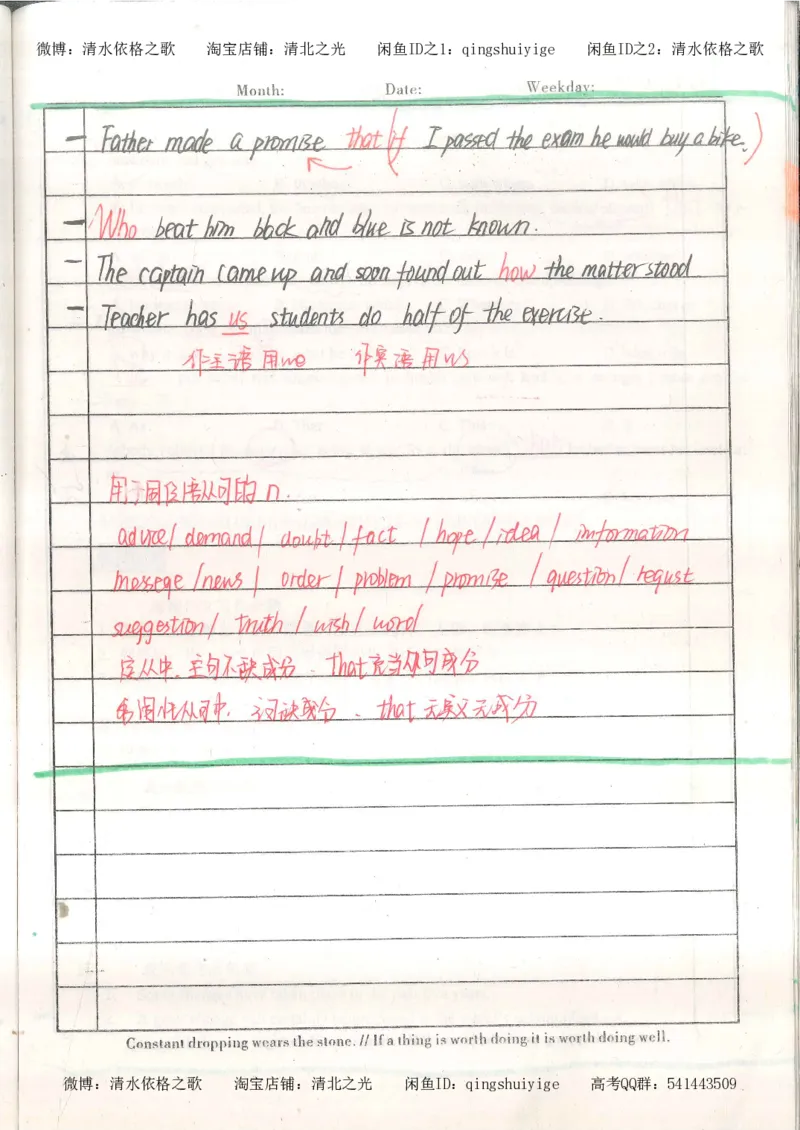 微博：清水依格之歌 淘宝店铺：清北之光 闲鱼ID之1：qingshuiyige 闲鱼ID之2：清水依格之歌
Month: Date: Weekday:
— Father made a promise that (if I passed the exam he would buy a bike.)
— Who beat him black and blue is not known.
— The captain came up and soon found out how the matter stood
— Teacher has us students do half of the exercise.
作主语用we 作宾语用us
用于同位语从句的n.
advice/ demand/ doubt/ fact / hope / idea / information
messege /news / order / problem / promise / question/ requst
suggestion/ truth / wish/ word/
定从中，主句不缺成分、that充当从句成分
同位从句中， 、that无实义无成分
Constant dropping wears the stone. // If a thing is worth doing it is worth doing well.
微博：清水依格之歌 淘宝店铺：清北之光 闲鱼ID：qingshuiyige 高考QQ群：541443509